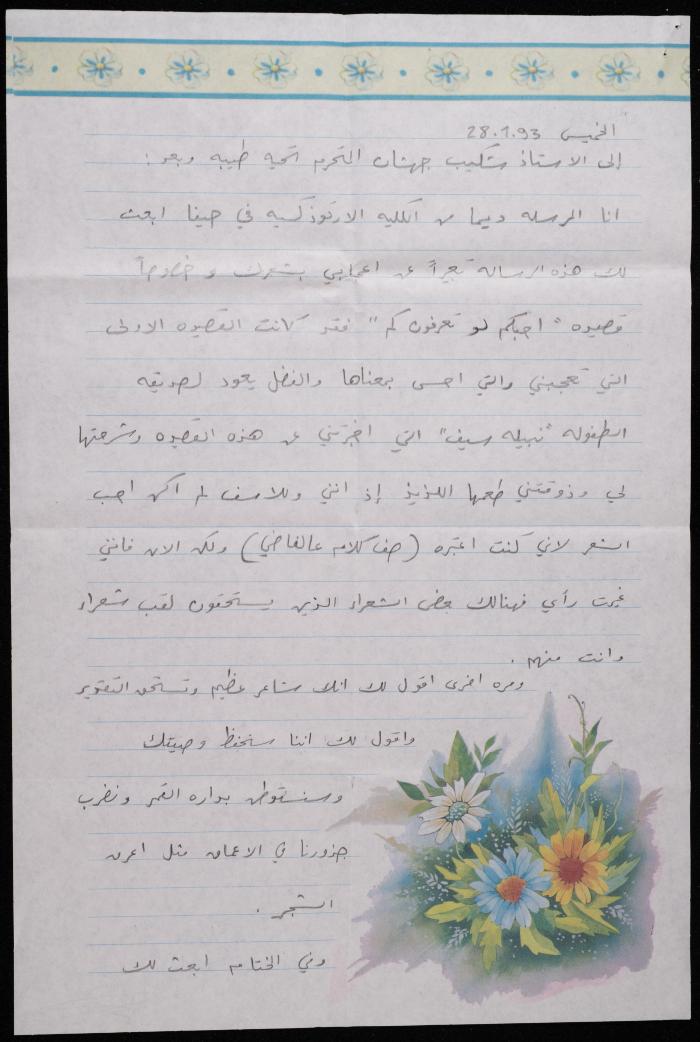 الخميس 28.1.93
إلى الاستاذ شكيب جهشان المحترم تحيه طيبه وبعد :
انا المرسله ديما من الكليه الارثوذكسيه في حيفا ابعث
لك هذه الرساله تعبيراً عن اعجابي بشعرك وخصوصاً
قصيده "احبكم لو تعرفون كم" فقد كانت القصيده الاولى
التي تعجبني والتي احس بمعناها والفضل يعود لصديقه
الطفوله "نبيله سيف" التي اخبرتني عن هذه القصيده وشرحتها
لي وذوقتني طعمها اللذيذ إذ انني وللاسف لم اكن احب
الشعر لاني كنت اعتبره (صف كلام عالفاضي) ولكن الان فانني
غيرت رأي فهنالك بعض الشعراء الذين يستحقون لقب شعراء
وانت منهم .
ومره اخرى اقول لك انك شاعر عظيم وتستحق التقدير
واقول لك اننا سنحفظ وصيتك
وسنستوطن بداره القمر ونضرب
جذورنا في الاعماق مثل اعرق
الشجر .
وفي الختام ابعث لك